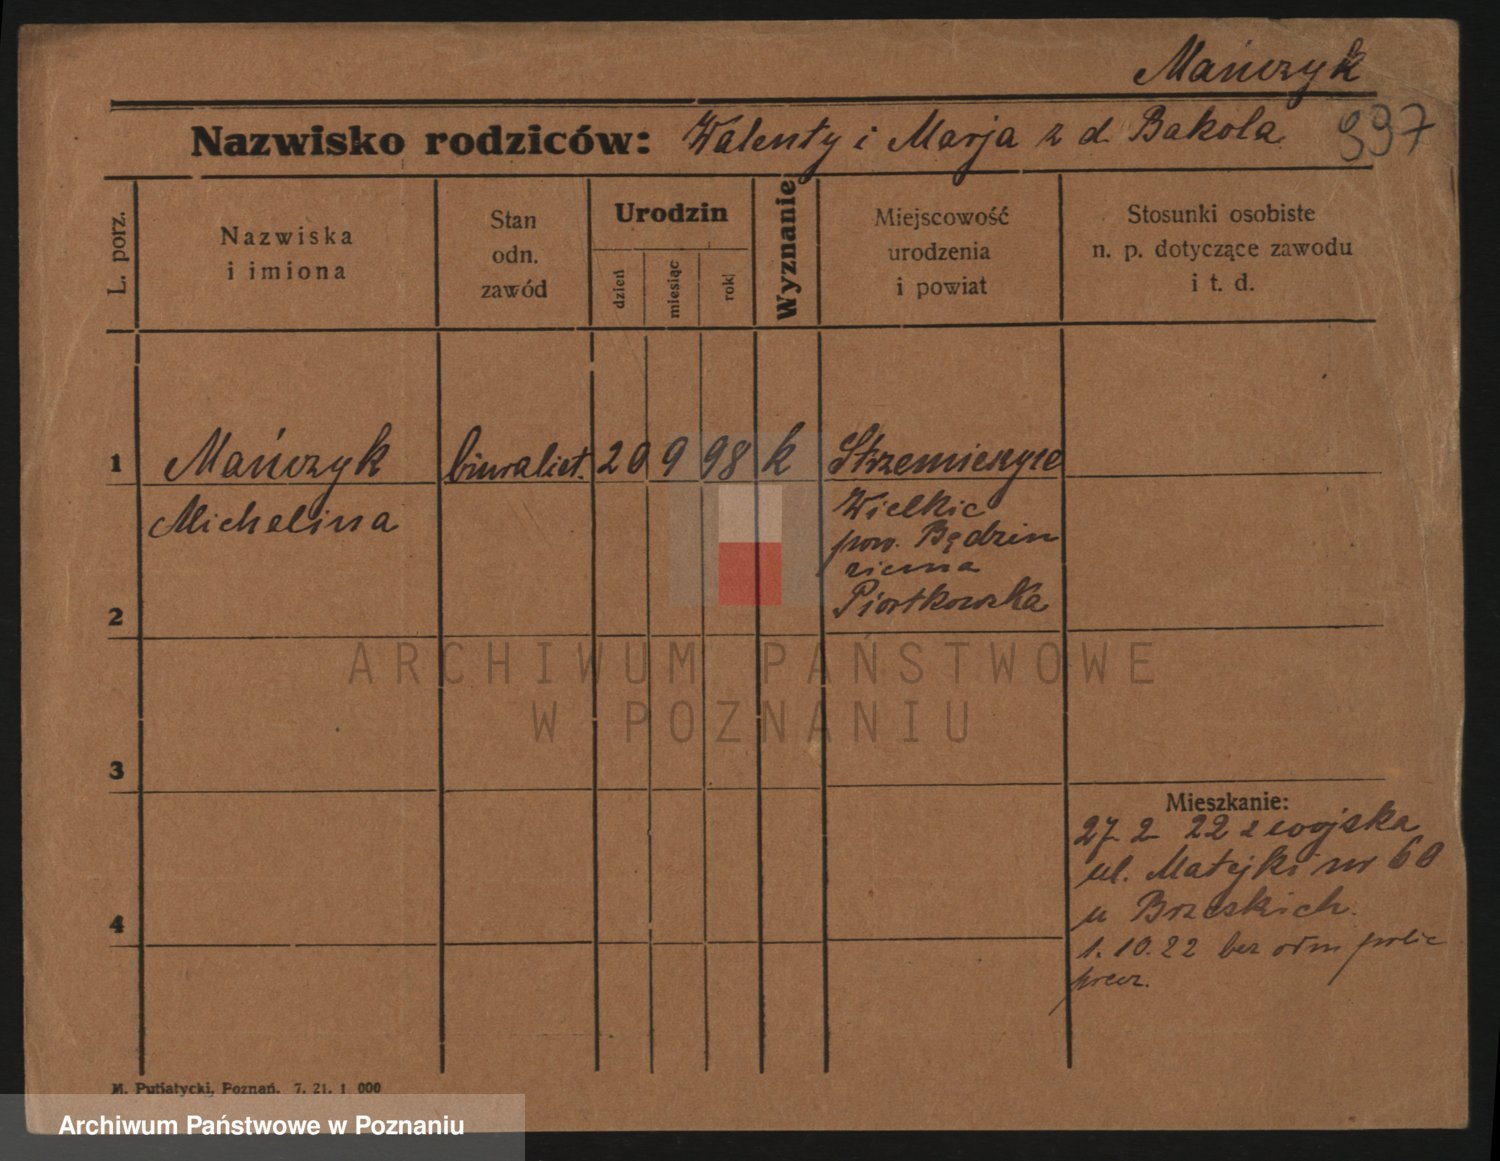 Mańczyk
Nazwisko rodziców: Walenty i Marja z d. Bakoła
997
L. porz.
Nazwiska
i imiona
Stan
odn.
zawód
Urodzin
dzień
miesiąc
rok
Wyznanie
Miejscowość
urodzenia
i powiat
Stosunki osobiste
n. p. dotyczące zawodu
i t. d.
1 Mańczyk biuralist. 20 9 98 k Strzemieszyce
Michelina Wielkie
pow. Będzin
ziemia
2 Piortkowska
ARCHIWUM PAŃSTWOWE
W POZNANIU
3
Mieszkanie:
27. 2 22 z wojska
ul. Matejki nr 60
u Brzeskich.
4
1. 10. 22 bez odm polic
M. Putiatycki, Poznań. 7. 21. 1 000
Archiwum Państwowe w Poznaniu